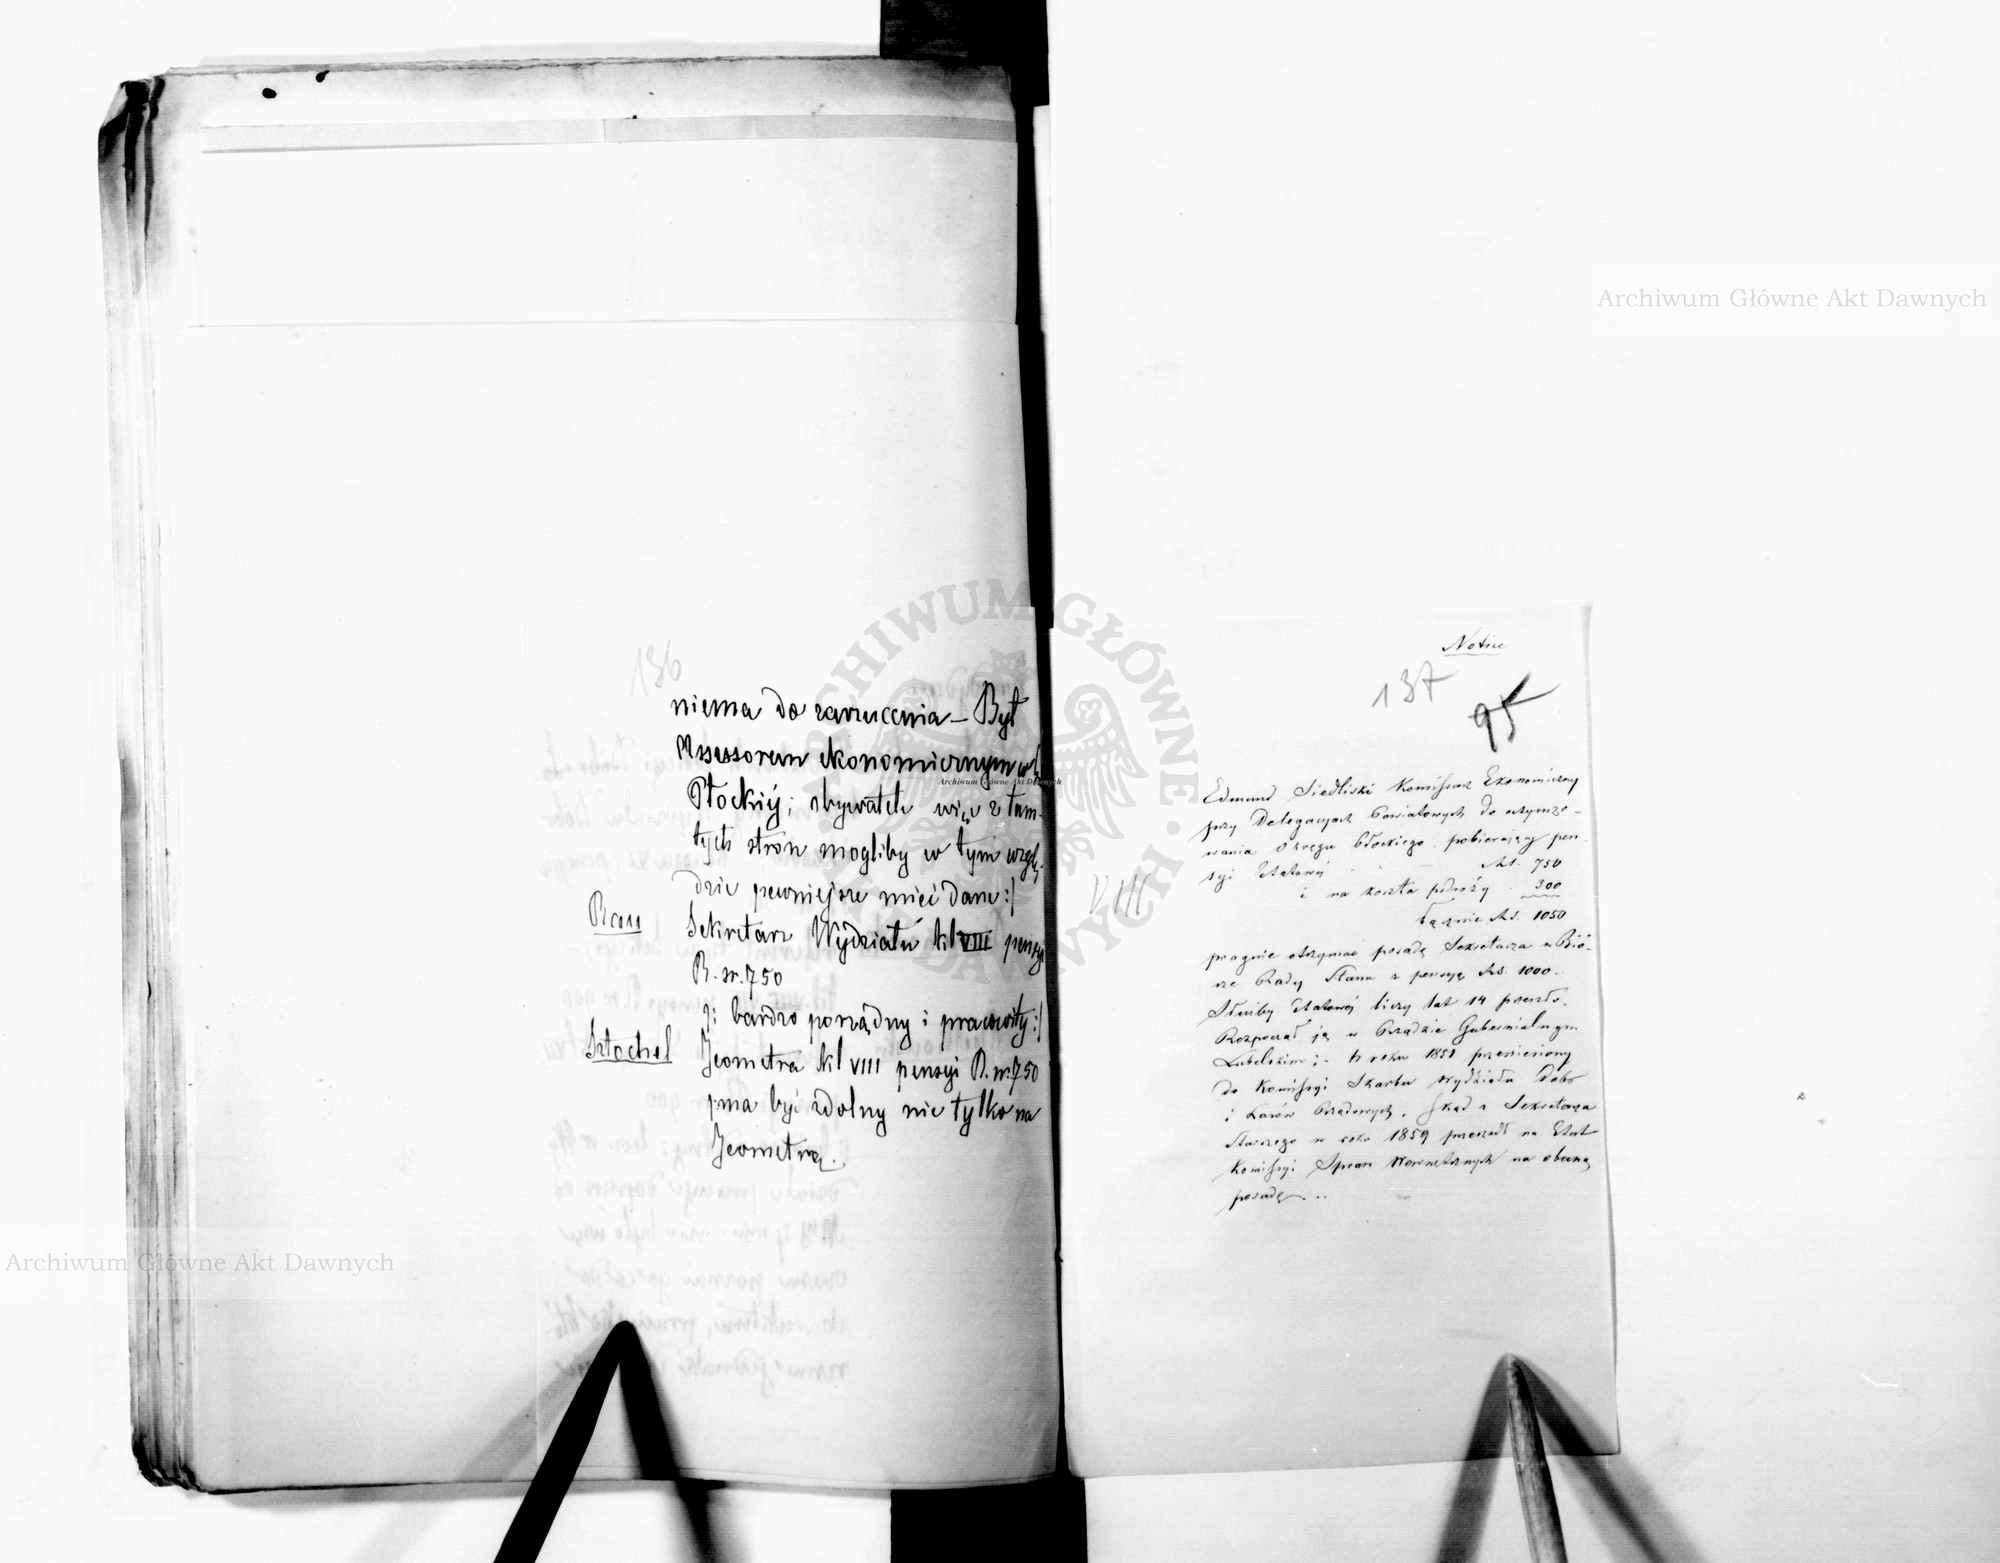 136
niema do zarzucenia – Był
Assessorem ekonomicznym w
Płockiej; obywatele więc z tam-
tych stron mogliby w tym wzglę-
dzie pewniejsze mieć dane :/
Sekretarz Wydziału kl VIII pensyi
R. sr. 750
/: bardzo porządny i pracowity :/
Sztochel
Jeometra kl VIII pensyi R. sr. 750
ma być zdolny nie tylko na
Jeometrę.
Notice
137
95
VIII
Edmund Siedliski Komissarz Ekonomiczny
przy Delegacyach Powiatowych do oczynszo-
wania Okręgu Płockiego pobierający pen-
syi Etatowej Rs. 750
i na koszta podróży 300
Łącznie Rs. 1050
pragnie otrzymać posadę Sekretarza w Bió-
rze Rady Stanu z pensyą Rs. 1000.
Służby Etatowej liczy lat 14 przeszło.
Rozpoczął ją w Rządzie Gubernialnym
Lubelskim; - W roku 1851 przeniesiony
do Komissyi Skarbu Wydziału Dóbr
i Lasów Rządowych. Skąd z Sekretarza
Starszego w roku 1859 przeszedł na Etat
Komissyi Spraw Wewnętrznych na obecną
posadę
Archiwum Główne Akt Dawnych
Archiwum Główne Akt Dawnych
Archiwum Główne Akt Dawnych
ARCHIWUM GŁÓWNE AKT DAWNYCH